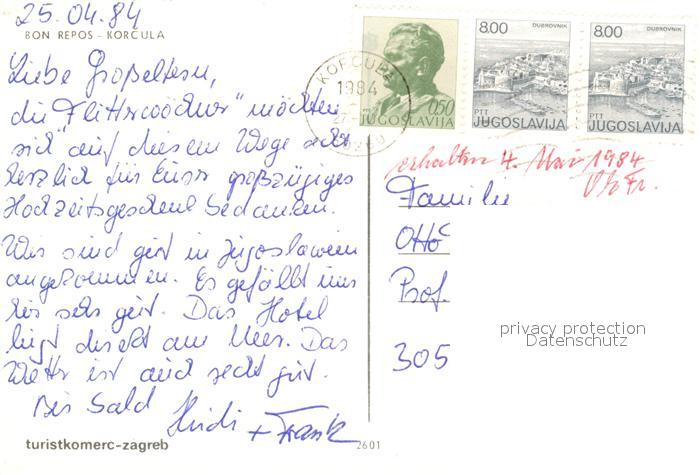 25.04.84
BON REPOS - KORČULA
Liebe Großeltern,
die "Flitterwöchner" möchten
sich auf diesem Wege recht
herzlich für Euer großzügiges
Hochzeitsgeschenk bedanken.
Wir sind gut in Jugoslawien
angekommen. Es gefällt uns
hier sehr gut. Das Hotel
liegt direkt am Meer. Das
Wetter ist auch recht gut.
Bis bald Heidi
+ Frank
turistkomerc-zagreb
2601
KORČULA
1984
PTT 0,50
JUGOSLAVIJA
8.00 DUBROVNIK
PTT
JUGOSLAVIJA
8.00 DUBROVNIK
PTT
JUGOSLAVIJA
erhalten 4. Mai 1984
Familie
Otto
Prof.
305
privacy protection
Datenschutz